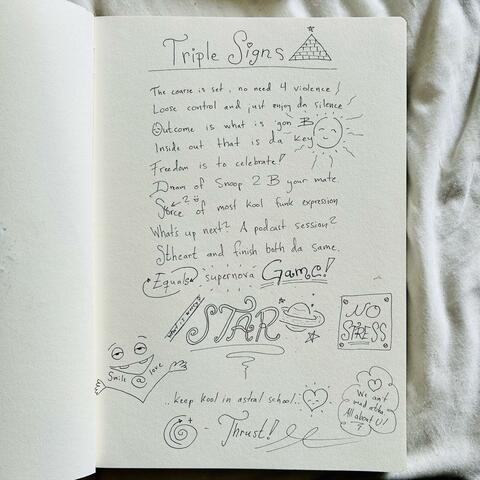 Triple Signs
The coarse is set, no need 4 violence!
Loose control and just enjoy da silence!
Outcome is what is 'gon B
Inside out that is da key
Freedom is to celebrate!
Dream of Snoop 2 B your mate
2
Sforce of most kool funk expression
What's up next? A podcast session?
Stheart and finish both da same.
Equals supernova Game!
STAR
NO
STRESS
Smile @ love
..keep kool in astral school..
- Thrust!
We ain't
All about U!
?